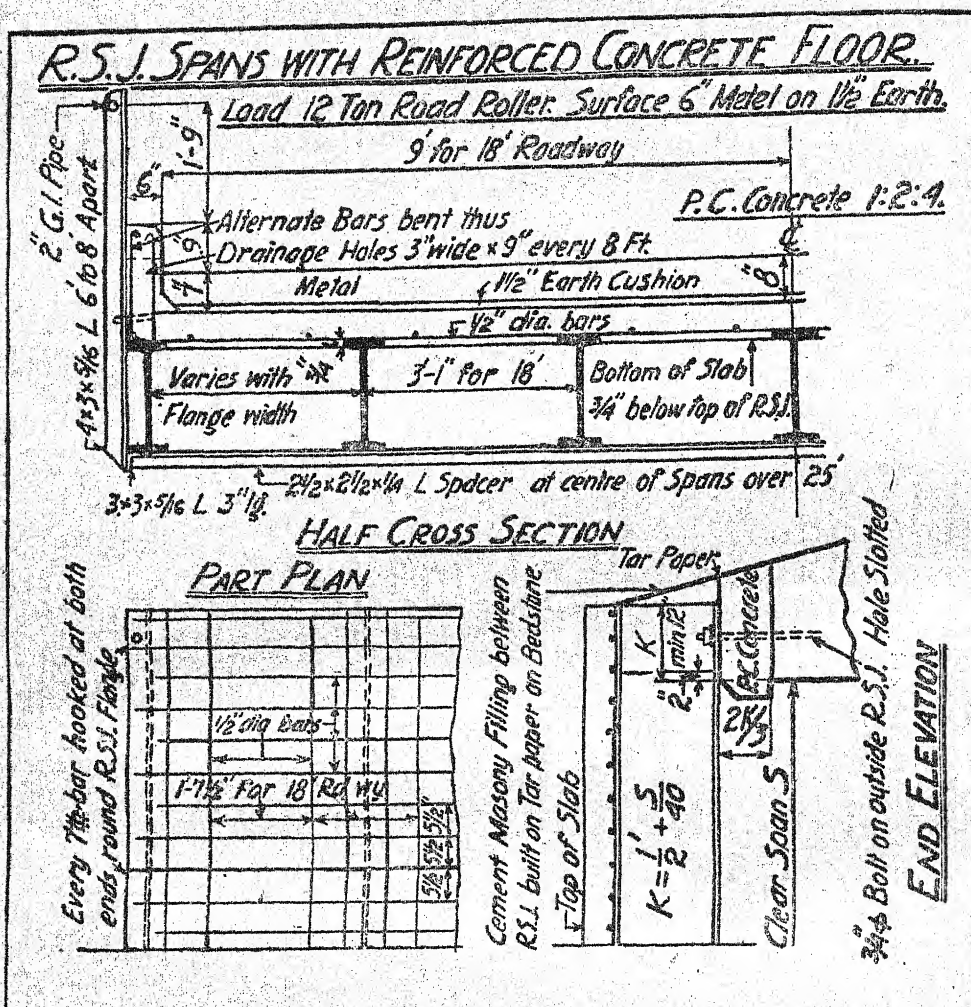 R.S.J. SPANS WITH REINFORCED CONCRETE FLOOR.
Load 12 Ton Road Roller. Surface 6" Metel on 1½" Earth.
9' for 18' Roadway
P.C. Concrete 1:2:4.
2" G.I. Pipe
4×3×5/16 L 6' to 8' Apart
1'-9"
6"
9"
Alternate Bars bent thus
Drainage Holes 3" wide × 9" every 8 Ft.
Metal
1½" Earth Cushion
8"
½" dia. bars
Varies with
Flange width
3'-1" for 18'
Bottom of Slab
¾" below top of R.S.J.
3×3×5/16 L 3" lg.
2½×2½×¼ L Spacer at centre of Spans over 25'
HALF CROSS SECTION
PART PLAN
Every 7th bar hooked at both
ends round R.S.J. Flange
½" dia bars
1-7½" For 18' Rd wy
5½" 5½" 5½"
Cement Masony Filling between
R.S.J. built on Tar paper on Bedstone
Tar Paper
Top of Slab
K
min 12"
2"
P.C. Concrete
K = 1'/2 + S/40
Clear Span S
¾"ɸ Bolt on outside R.S.J. Hole Slotted
END ELEVATION